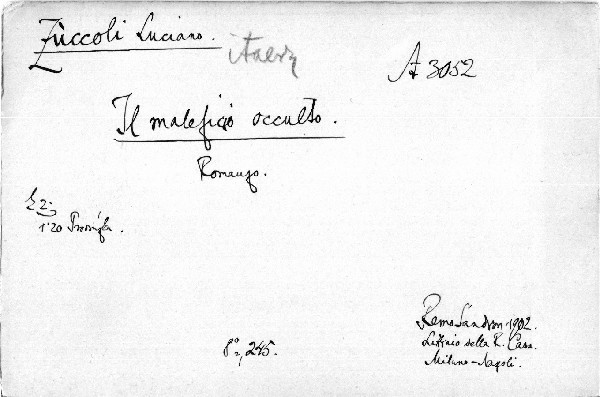 Zùccoli Luciano.
A 3052
Il maleficio occulto.
Romanzo.
L 2.-
1.20
8°, 245.
Remo Sandron 1902.
Libraio della R. Casa.
Milano-Napoli.